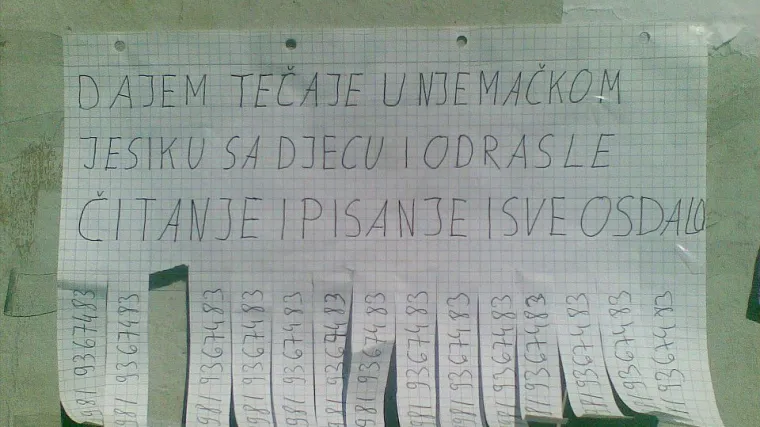 DAJEM TEČAJE U NJEMAČKOM
JESIKU SA DJECU I ODRASLE
ČITANJE I PISANJE I SVE OSDALO
981 9367483
981 9367483
981 9367483
981 9367483
981 9367483
981 9367483
981 9367483
981 9367483
981 9367483
981 9367483
981 9367483
1 9367483
1 9367483
1 9367483